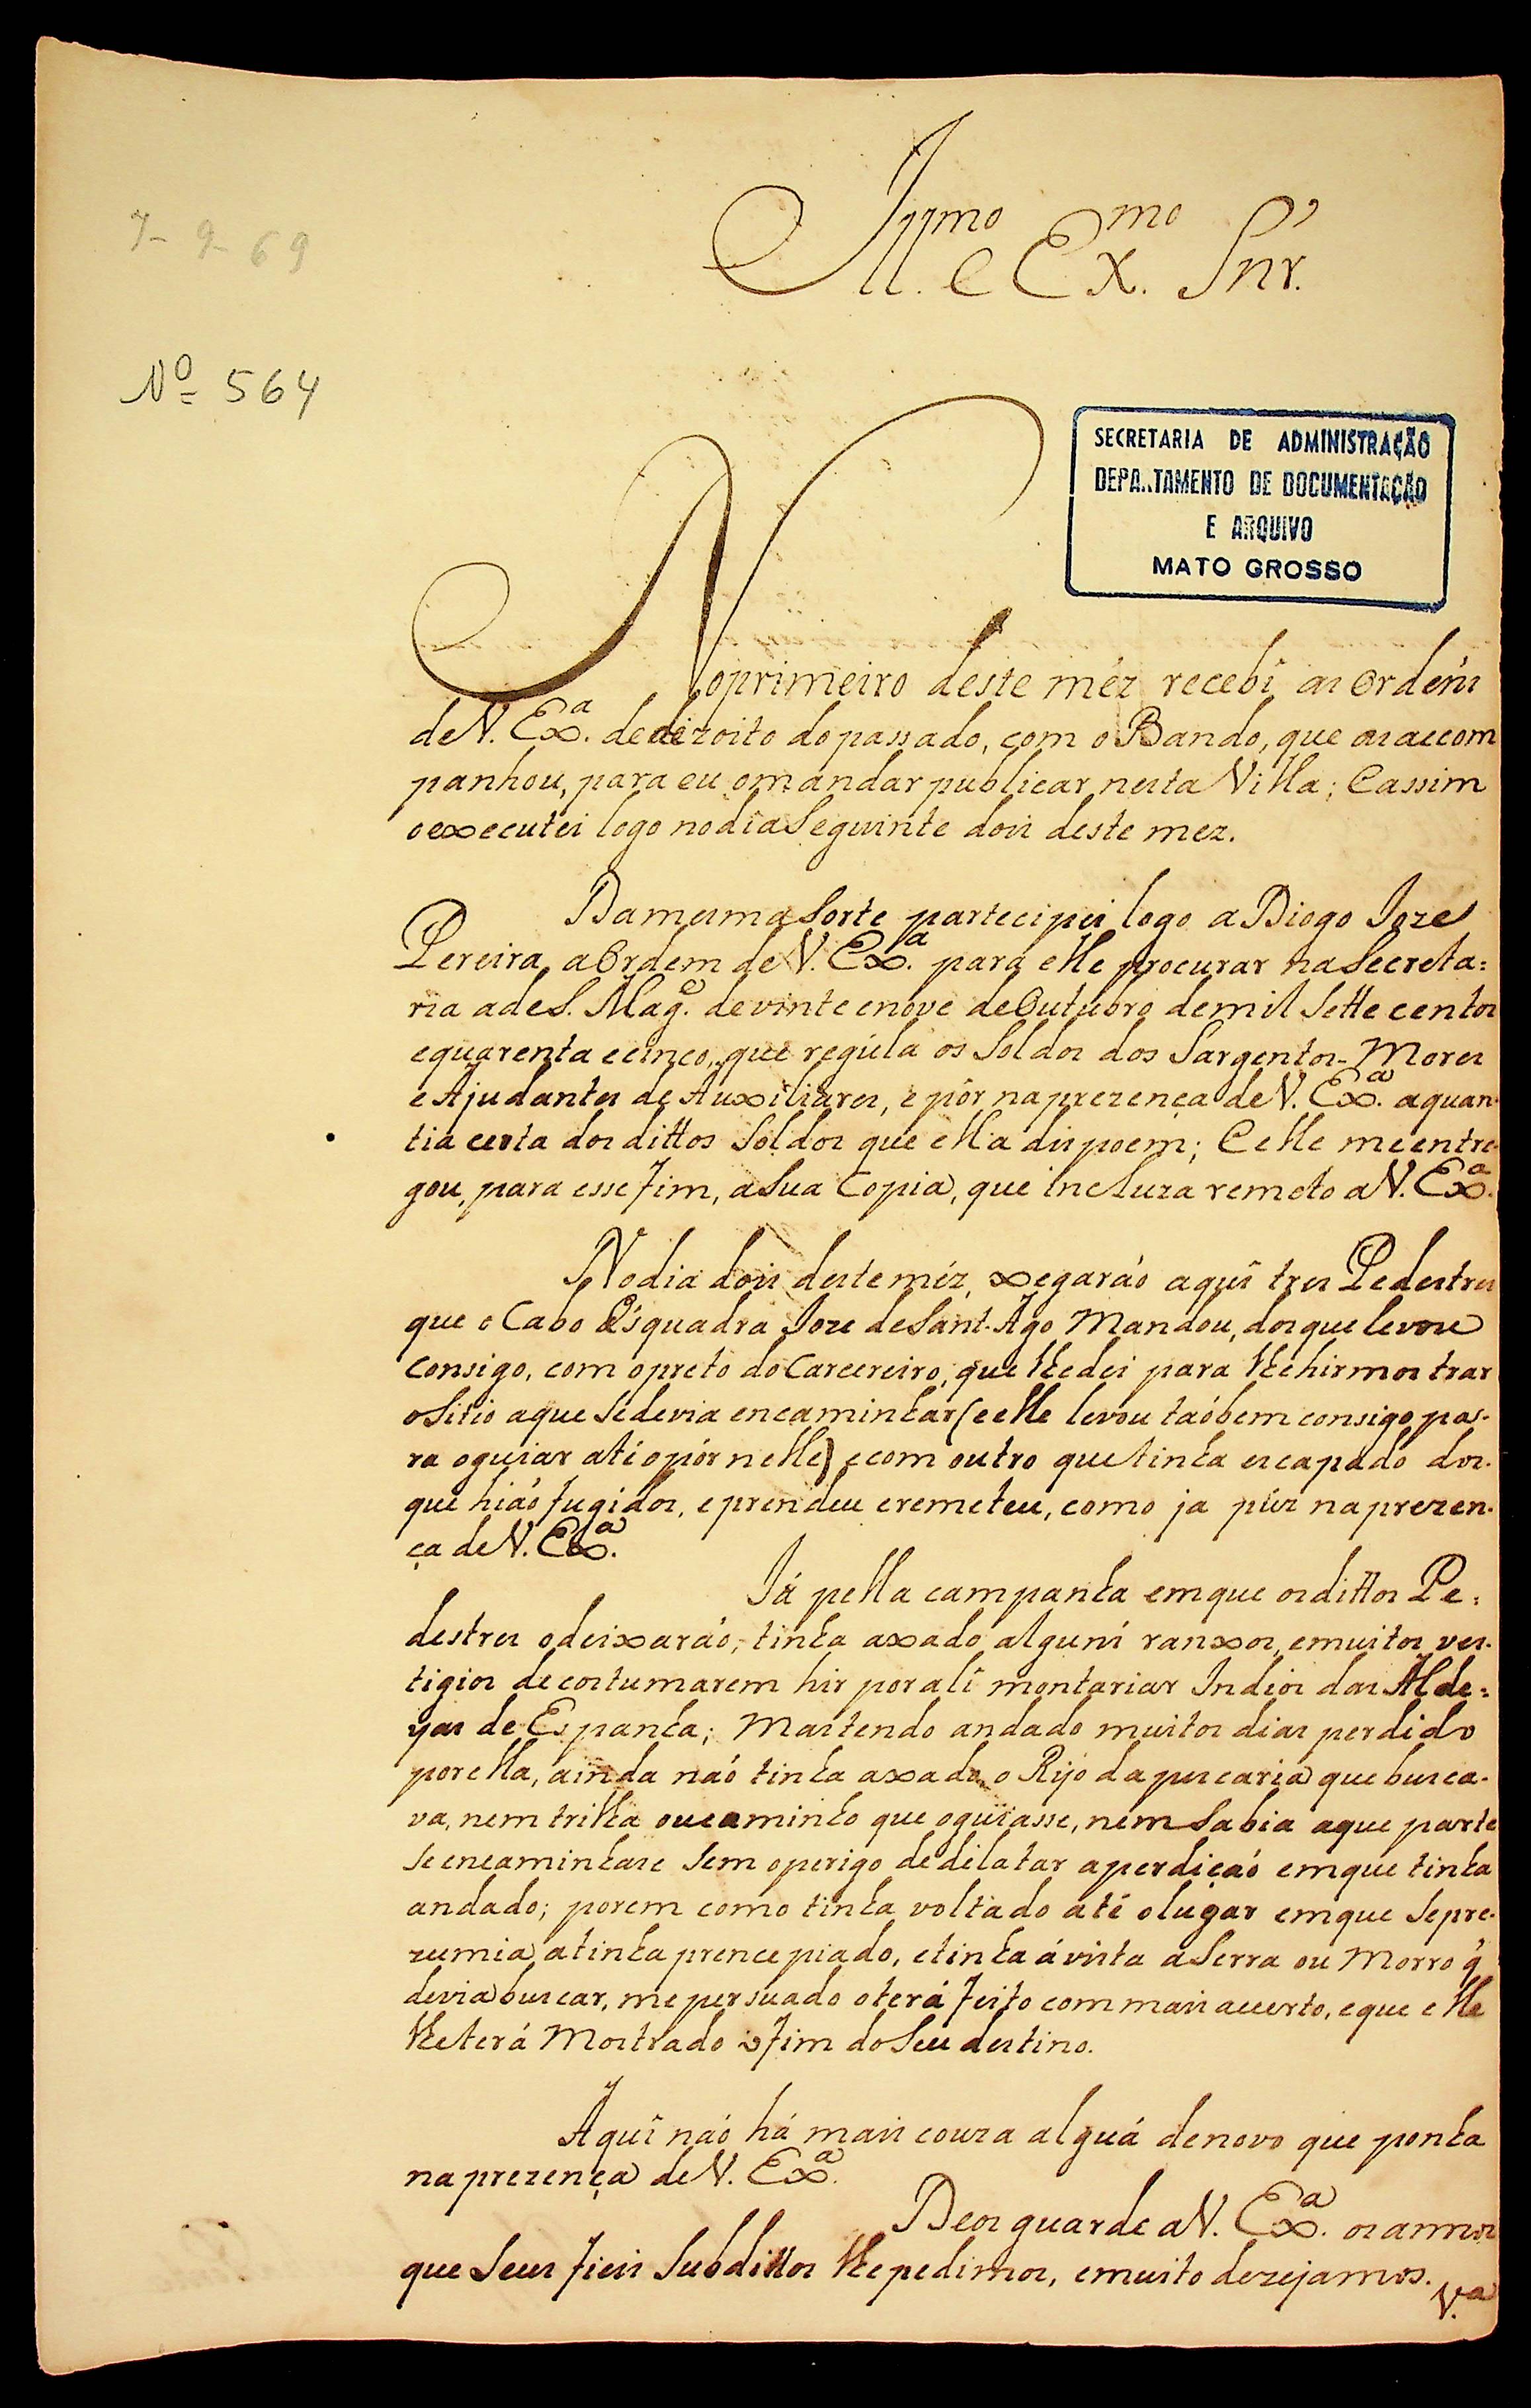 7-9-69
Ill.mo e Ex.mo Snr.
Nº 564
SECRETARIA DE ADMINISTRAÇÃO
DEPA..TAMENTO DE DOCUMENTAÇÃO
E ARQUIVO
MATO GROSSO
Noprimeiro deste méz recebi as Ordéns
deV. Ex.a dedezoito dopassado, com o Bando, que asaccom
panhou, para eu omandar publicar nesta Villa; Eassim
oexecutei logo nodiaSeguinte dois deste mez.
DamesmaSorte partecipei logo a Diogo Joze
Pereira, aOrdem deV. Ex.a para elle procurar naSecreta:
ria adeS. Mag.e devinte enove deOutubro demil Sette centos
equarenta ecinco, que regúla os Soldos dos Sargentos-Mores
e Ajudantes de Auxiliares, e pôr naprezença deV. Ex.a aquan
tia certa dos dittos Soldos que ella dispoem; Eelle meentre
gou, para esse fim, aSua Copia, que incluza remeto aV. Ex.a
Nodia dois desteméz, xegaráo aqui tres Pedestres
que o Cabo d'Esquadra Joze deSant-Ago Mandou, dosque levou
consigo, com opreto doCarcereiro, que lhedei para lhehirmostrar
oSitio aque Sedevia encaminhar (eelle levou taóbem consigo pa-
ra oguiar até opór nelle) ecom outro quetinha escapado dos
que hiáo fugidos, eprendeu eremeteu, como ja púz naprezen-
ça deV. Ex.a
Já pella campanha emque osdittos Pe:
destres odeixaráo, tinha axado alguns ranxos, emuitos ves-
tigios decostumarem hir porali montariar Indios das Alde:
yas de Espanha; Mastendo andado muitos dias perdido
porella, ainda naó tinha axado o Rijo dapescaria que busca-
va, nem trilha oucaminho que oguiasse, nem Sabia aque parte
Seencaminhase Sem operigo dedilatar aperdiçaó emque tinha
andado; porem como tinha voltado até olugar emque Sepre-
zumia atinha prencepiado, etinha ávista aSerra ou Morro q̃
deviabuscar, mepersuado oterá feito commais acerto, eque elle
lheterá Mostrado ofim doSeu destino.
Aqui náo há mais couza alguá denovo que ponha
naprezença deV. Ex.a
Deos guarde aV. Ex.a osannos
que Seus fieis Subdittos lhepedimos, emuito dezejamos.
V.a